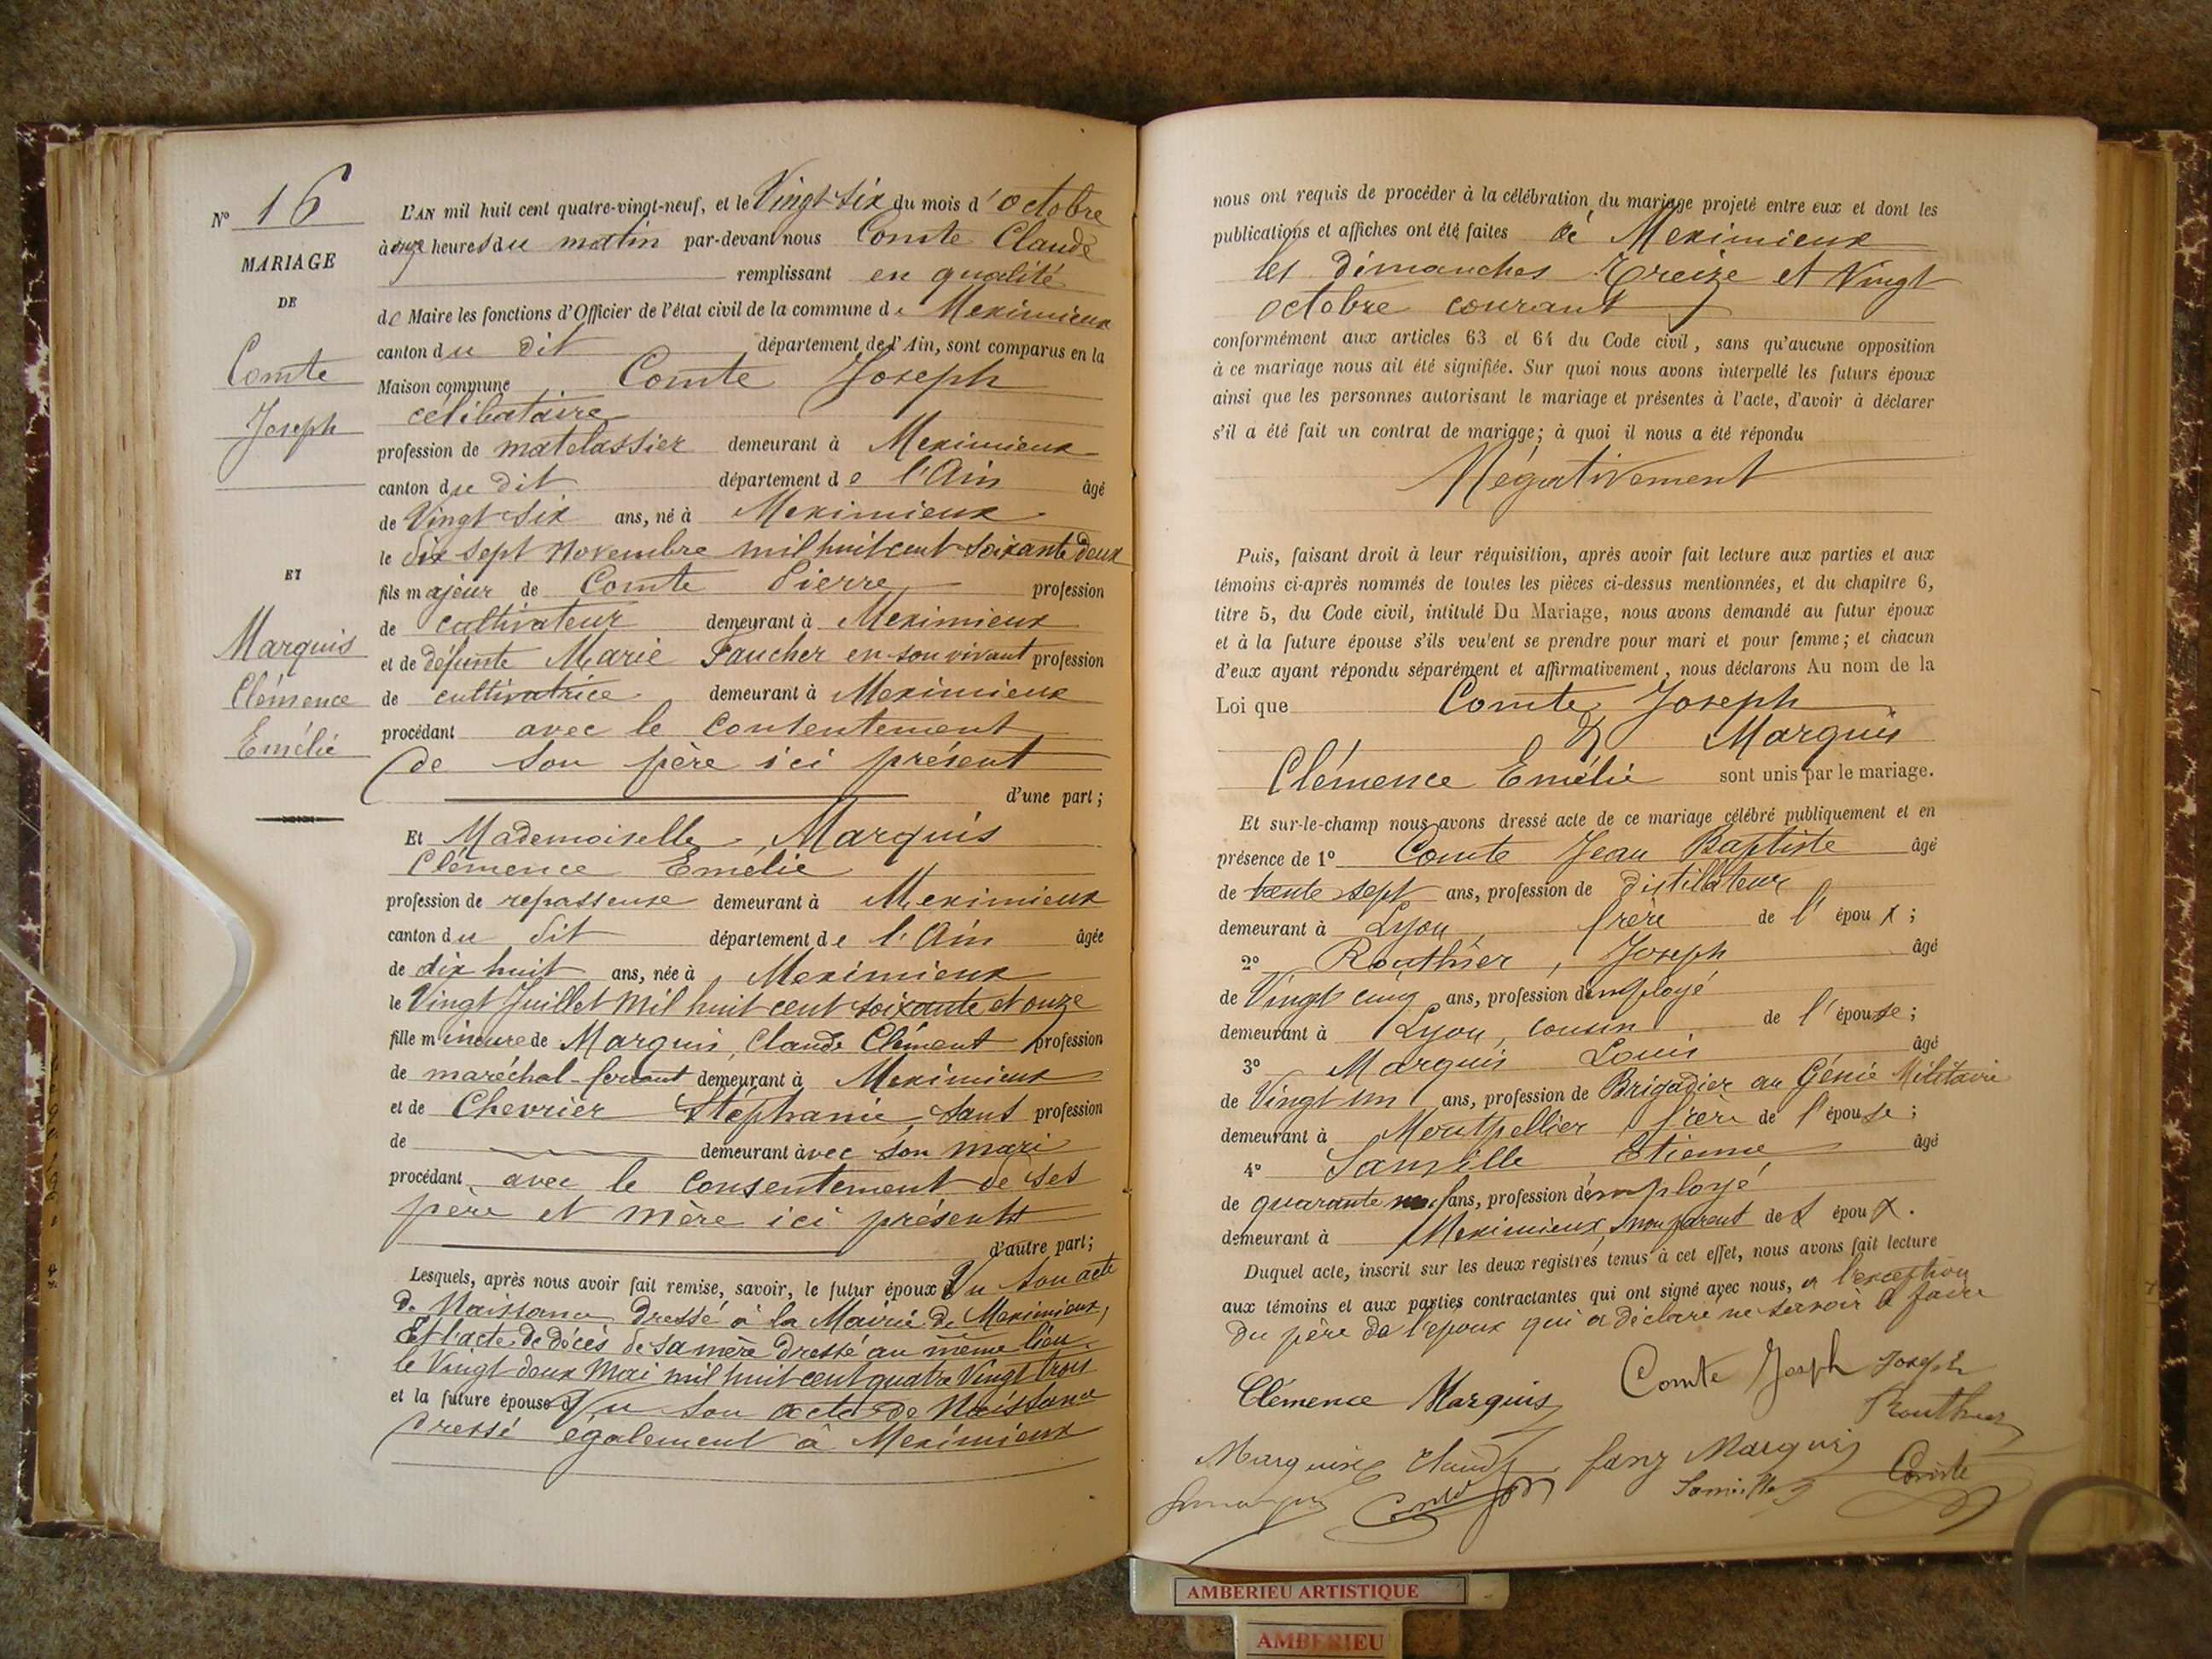 N° 16
MARIAGE
DE
Comte
Joseph
ET
Marquis
Clémence
Emélie
L'AN mil huit cent quatre-vingt-neuf, et le Vingt Six du mois d'octobre
à onze heures du matin par-devant nous Comte Claude
remplissant en qualité
de Maire les fonctions d'Officier de l'état civil de la commune de Meximieux
canton du dit département de l'Ain, sont comparus en la
Maison commune, Comte Joseph
célibataire
profession de matelassier demeurant à Meximieux
canton du dit département de l'Ain âgé
de Vingt Six ans, né à Meximieux
le dix sept novembre mil huit cent soixante deux
fils majeur de Comte Pierre profession
de cultivateur demeurant à Meximieux
et de défunte Marie Faucher en son vivant profession
de cultivatrice demeurant à Meximieux
procédant avec le consentement
de son père ici présent
d'une part;
Et Mademoiselle Marquis
Clémence Emélie
profession de repasseuse demeurant à Meximieux
canton du dit département de l'Ain âgée
de dix huit ans, née à Meximieux
le Vingt Juillet mil huit cent soixante et onze
fille mineure de Marquis, Claude Clément profession
de maréchal-ferrant demeurant à Meximieux
et de Chevrier Stéphanie, sans profession
de demeurant avec son mari
procédant avec le consentement de ses
père et mère ici présents
d'autre part;
Lesquels, après nous avoir fait remise, savoir, le futur époux Vu son acte
de Naissance dressé à la Mairie de Meximieux,
Et l'acte de décès de sa mère dressé au même lieu
le Vingt deux Mai mil huit cent quatre Vingt trois
et la future épouse Vu son acte de Naissance
dressé également à Meximieux
nous ont requis de procéder à la célébration du mariage projeté entre eux et dont les
publications et affiches ont été faites à Meximieux
les dimanches Treize et Vingt
octobre courant
conformément aux articles 63 et 64 du Code civil, sans qu'aucune opposition
à ce mariage nous ait été signifiée. Sur quoi nous avons interpellé les futurs époux
ainsi que les personnes autorisant le mariage et présentes à l'acte, d'avoir à déclarer
s'il a été fait un contrat de mariage; à quoi il nous a été répondu
Négativement
Puis, faisant droit à leur réquisition, après avoir fait lecture aux parties et aux
témoins ci-après nommés de toutes les pièces ci-dessus mentionnées, et du chapitre 6,
titre 5, du Code civil, intitulé Du Mariage, nous avons demandé au futur époux
et à la future épouse s'ils veulent se prendre pour mari et pour femme; et chacun
d'eux ayant répondu séparément et affirmativement, nous déclarons Au nom de la
Loi que Comte Joseph
& Marquis
Clémence Emélie sont unis par le mariage.
Et sur-le-champ nous avons dressé acte de ce mariage célébré publiquement et en
présence de 1° Comte Jean Baptiste âgé
de trente sept ans, profession de distillateur
demeurant à Lyon, frère de l'époux;
2° Routhier, Joseph âgé
de Vingt cinq ans, profession d'employé
demeurant à Lyon, cousin de l'épouse;
3° Marquis Louis âgé
de Vingt un ans, profession de Brigadier au Génie Militaire
demeurant à Montpellier frère de l'épouse;
4° Samille Etienne âgé
de quarante neuf ans, profession d'employé
demeurant à Meximieux, non parent des époux.
Duquel acte, inscrit sur les deux registres tenus à cet effet, nous avons fait lecture
aux témoins et aux parties contractantes qui ont signé avec nous, à l'exception
du père de l'époux qui a déclaré ne savoir le faire
Clémence Marquis Comte Joseph Joseph
Routhier
Marquis Claude Marquis Comte
Samille
AMBERIEU ARTISTIQUE
AMBERIEU